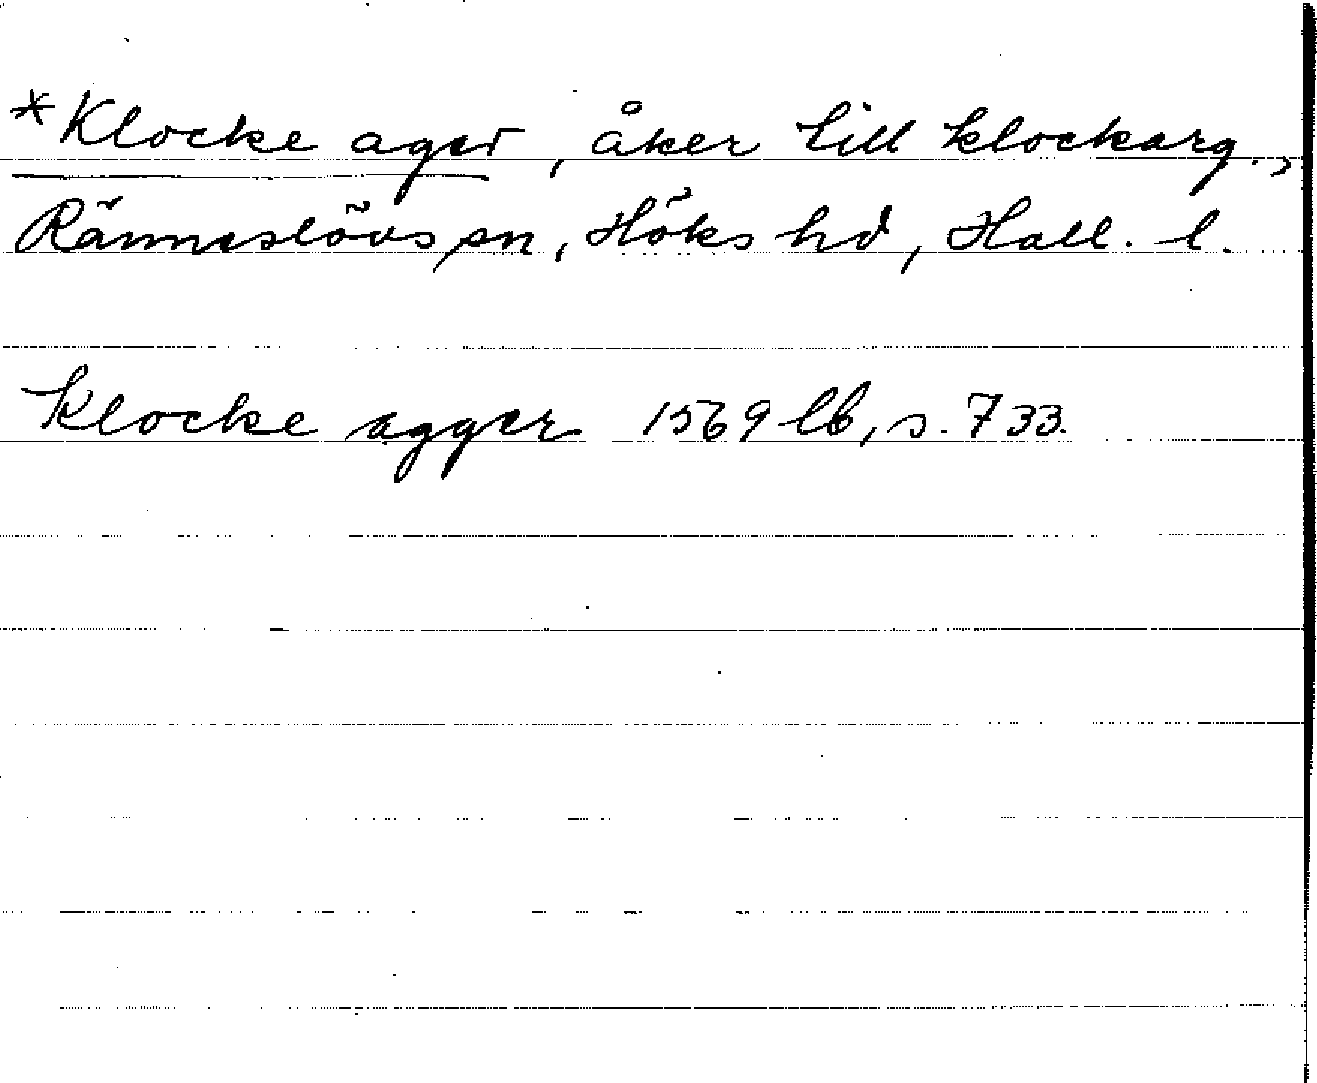 *Klocke ager, åker till klockarg.,
Ränneslövs sn, Höks hd, Hall. l.
Klocke agger 1569 lb, s. 733.